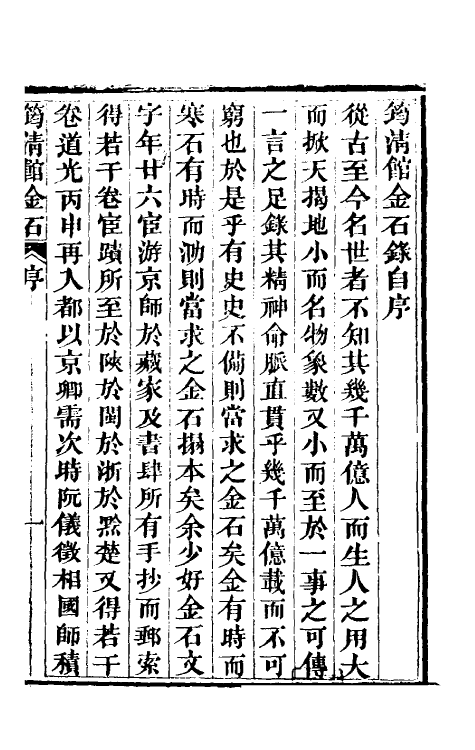 筠清館金石錄自序
從古至今名世者不知其幾千萬億人而生人之用大
而掀天揭地小而名物象數又小而至於一事之可傳
一言之足錄其精神命脈直貫乎幾千萬億載而不可
窮也於是乎有史史不備則當求之金石矣金有時而
寒石有時而泐則當求之金石搨本矣余少好金石文
字年廿六宦游京師於藏家及書肆所有手抄而郵索
得若干卷宦蹟所至於陝於閩於浙於黔楚又得若干
卷道光丙申再入都以京卿需次時阮儀徵相國師積
筠清館金石 序 一